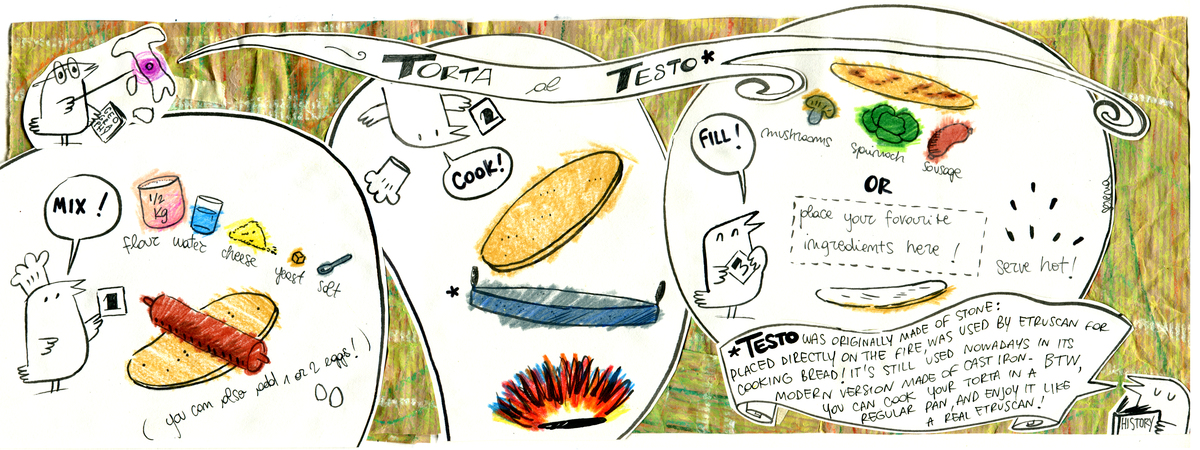 TORTA al TESTO*
MIX!
1/2
Kg
flour
water
cheese
yeast
salt
1
(you can also add 1 or 2 eggs!)
COOK!
2
*
FILL!
3
mushrooms
spinach
sausage
OR
place your favourite
ingredients here!
serve hot!
*TESTO WAS ORIGINALLY MADE OF STONE:
PLACED DIRECTLY ON THE FIRE, WAS USED BY ETRUSCAN FOR
COOKING BREAD! IT'S STILL USED NOWADAYS IN ITS
MODERN VERSION MADE OF CAST IRON. BTW,
YOU CAN COOK YOUR TORTA IN A
REGULAR PAN, AND ENJOY IT LIKE
A REAL ETRUSCAN!
HISTORY